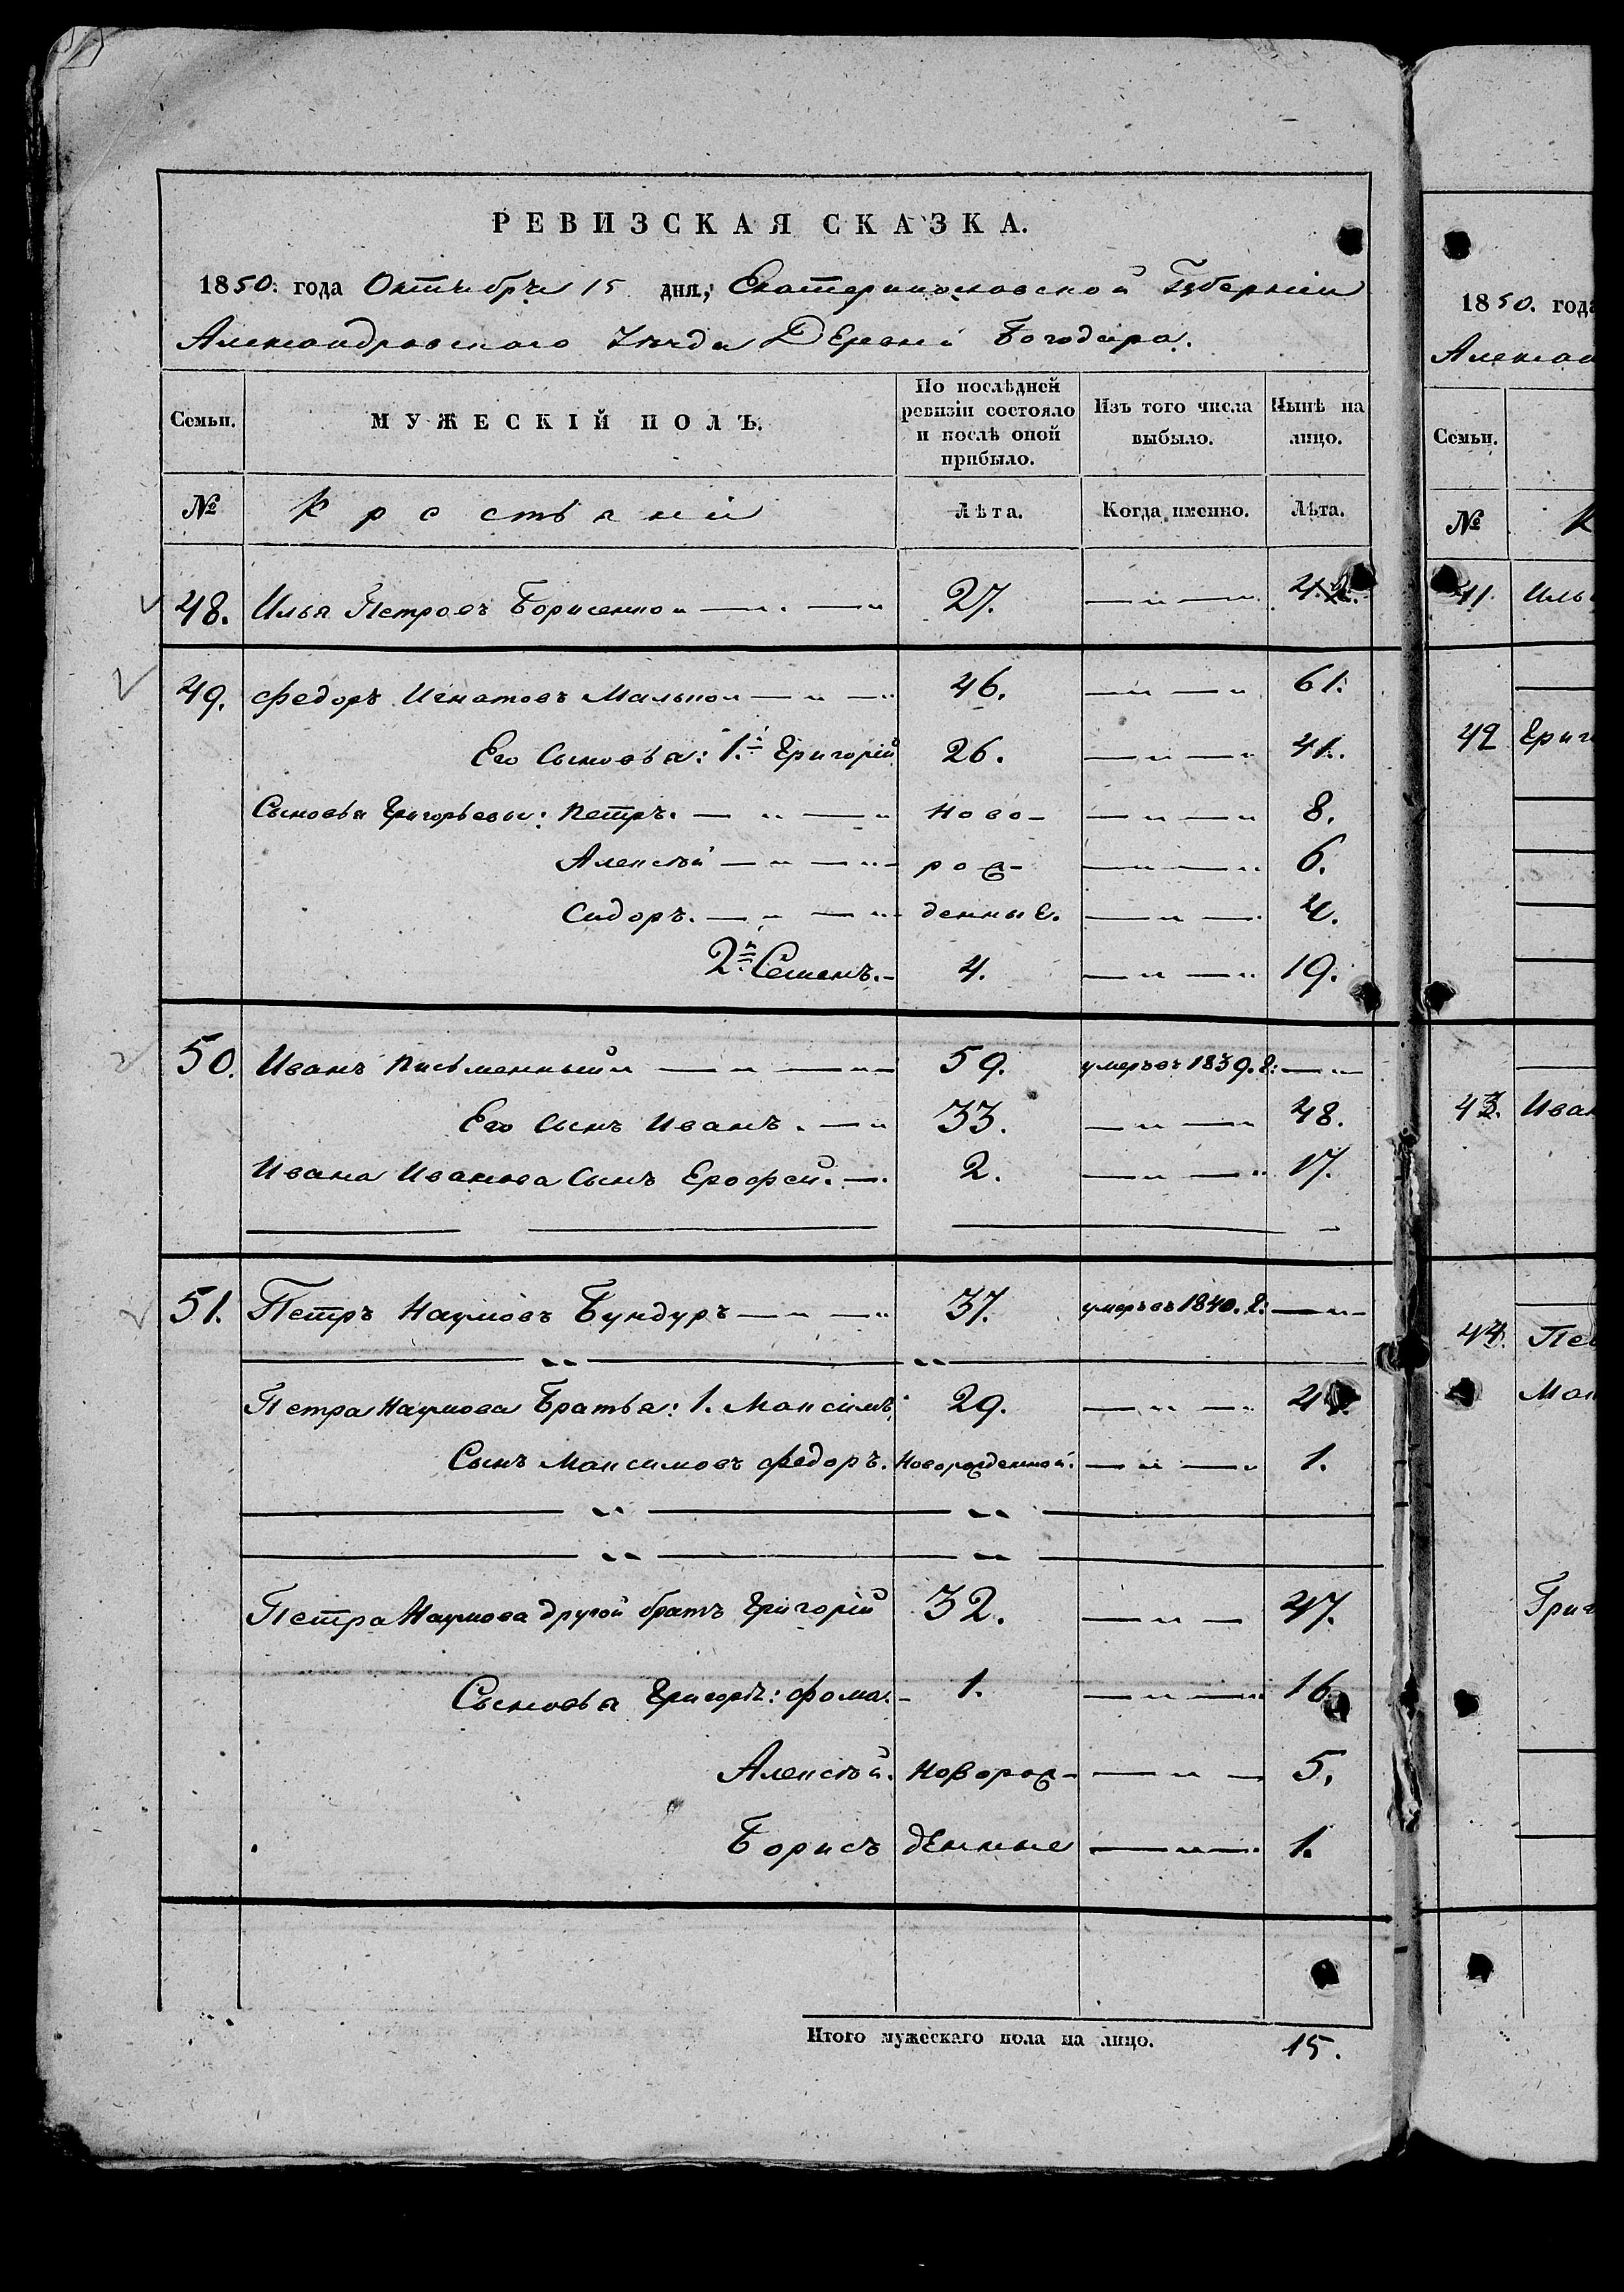 РЕВИЗСКАЯ СКАЗКА.
1850: года Октября 15 дня, Екатеринославской Губерніи
Александровскаго Уѣзда Деревни Богодара.
Семьи. МУЖЕСКІЙ ПОЛЪ. По послѣдней ревизіи состояло и послѣ оной прибыло. Изъ того числа выбыло. Нынѣ на лицо.
№ Крестьяни Лѣта. Когда именно. Лѣта.
48. Илья Петровъ Борисенко 27. 42.
49. Федоръ Игнатовъ Малько 46. 61.
Его Сыновья: 1.й Григорій 26. 41.
Сыновья Григорьевы: Петръ. Ново- 8.
Алексѣй рож- 6.
Сидоръ. денные. 4.
2.й Семенъ. 4. 19.
50. Иванъ Письменный 59. умеръ въ 1839. г:
Его Сынъ Иванъ. 33. 48.
Ивана Иванова Сынъ Ерофей. 2. 17.
51. Петръ Наумовъ Бундуръ 37. умеръ въ 1840. г:
Петра Наумова Братья: 1. Максимъ 29.
Сынъ Максимовъ Федоръ. Новорожденной. 1.
Петра Наумова другой братъ Григорій 32. 47.
Сыновья Григорѣ: Фома. 1. 16
Алексѣй. Новорож- 5.
Борисъ денные 1.
Итого мужескаго пола на лицо. 15.
1850. года
Алекса
Семьи.
№ К
41. Иль
42 Григ
43. Иван
44.
Григ